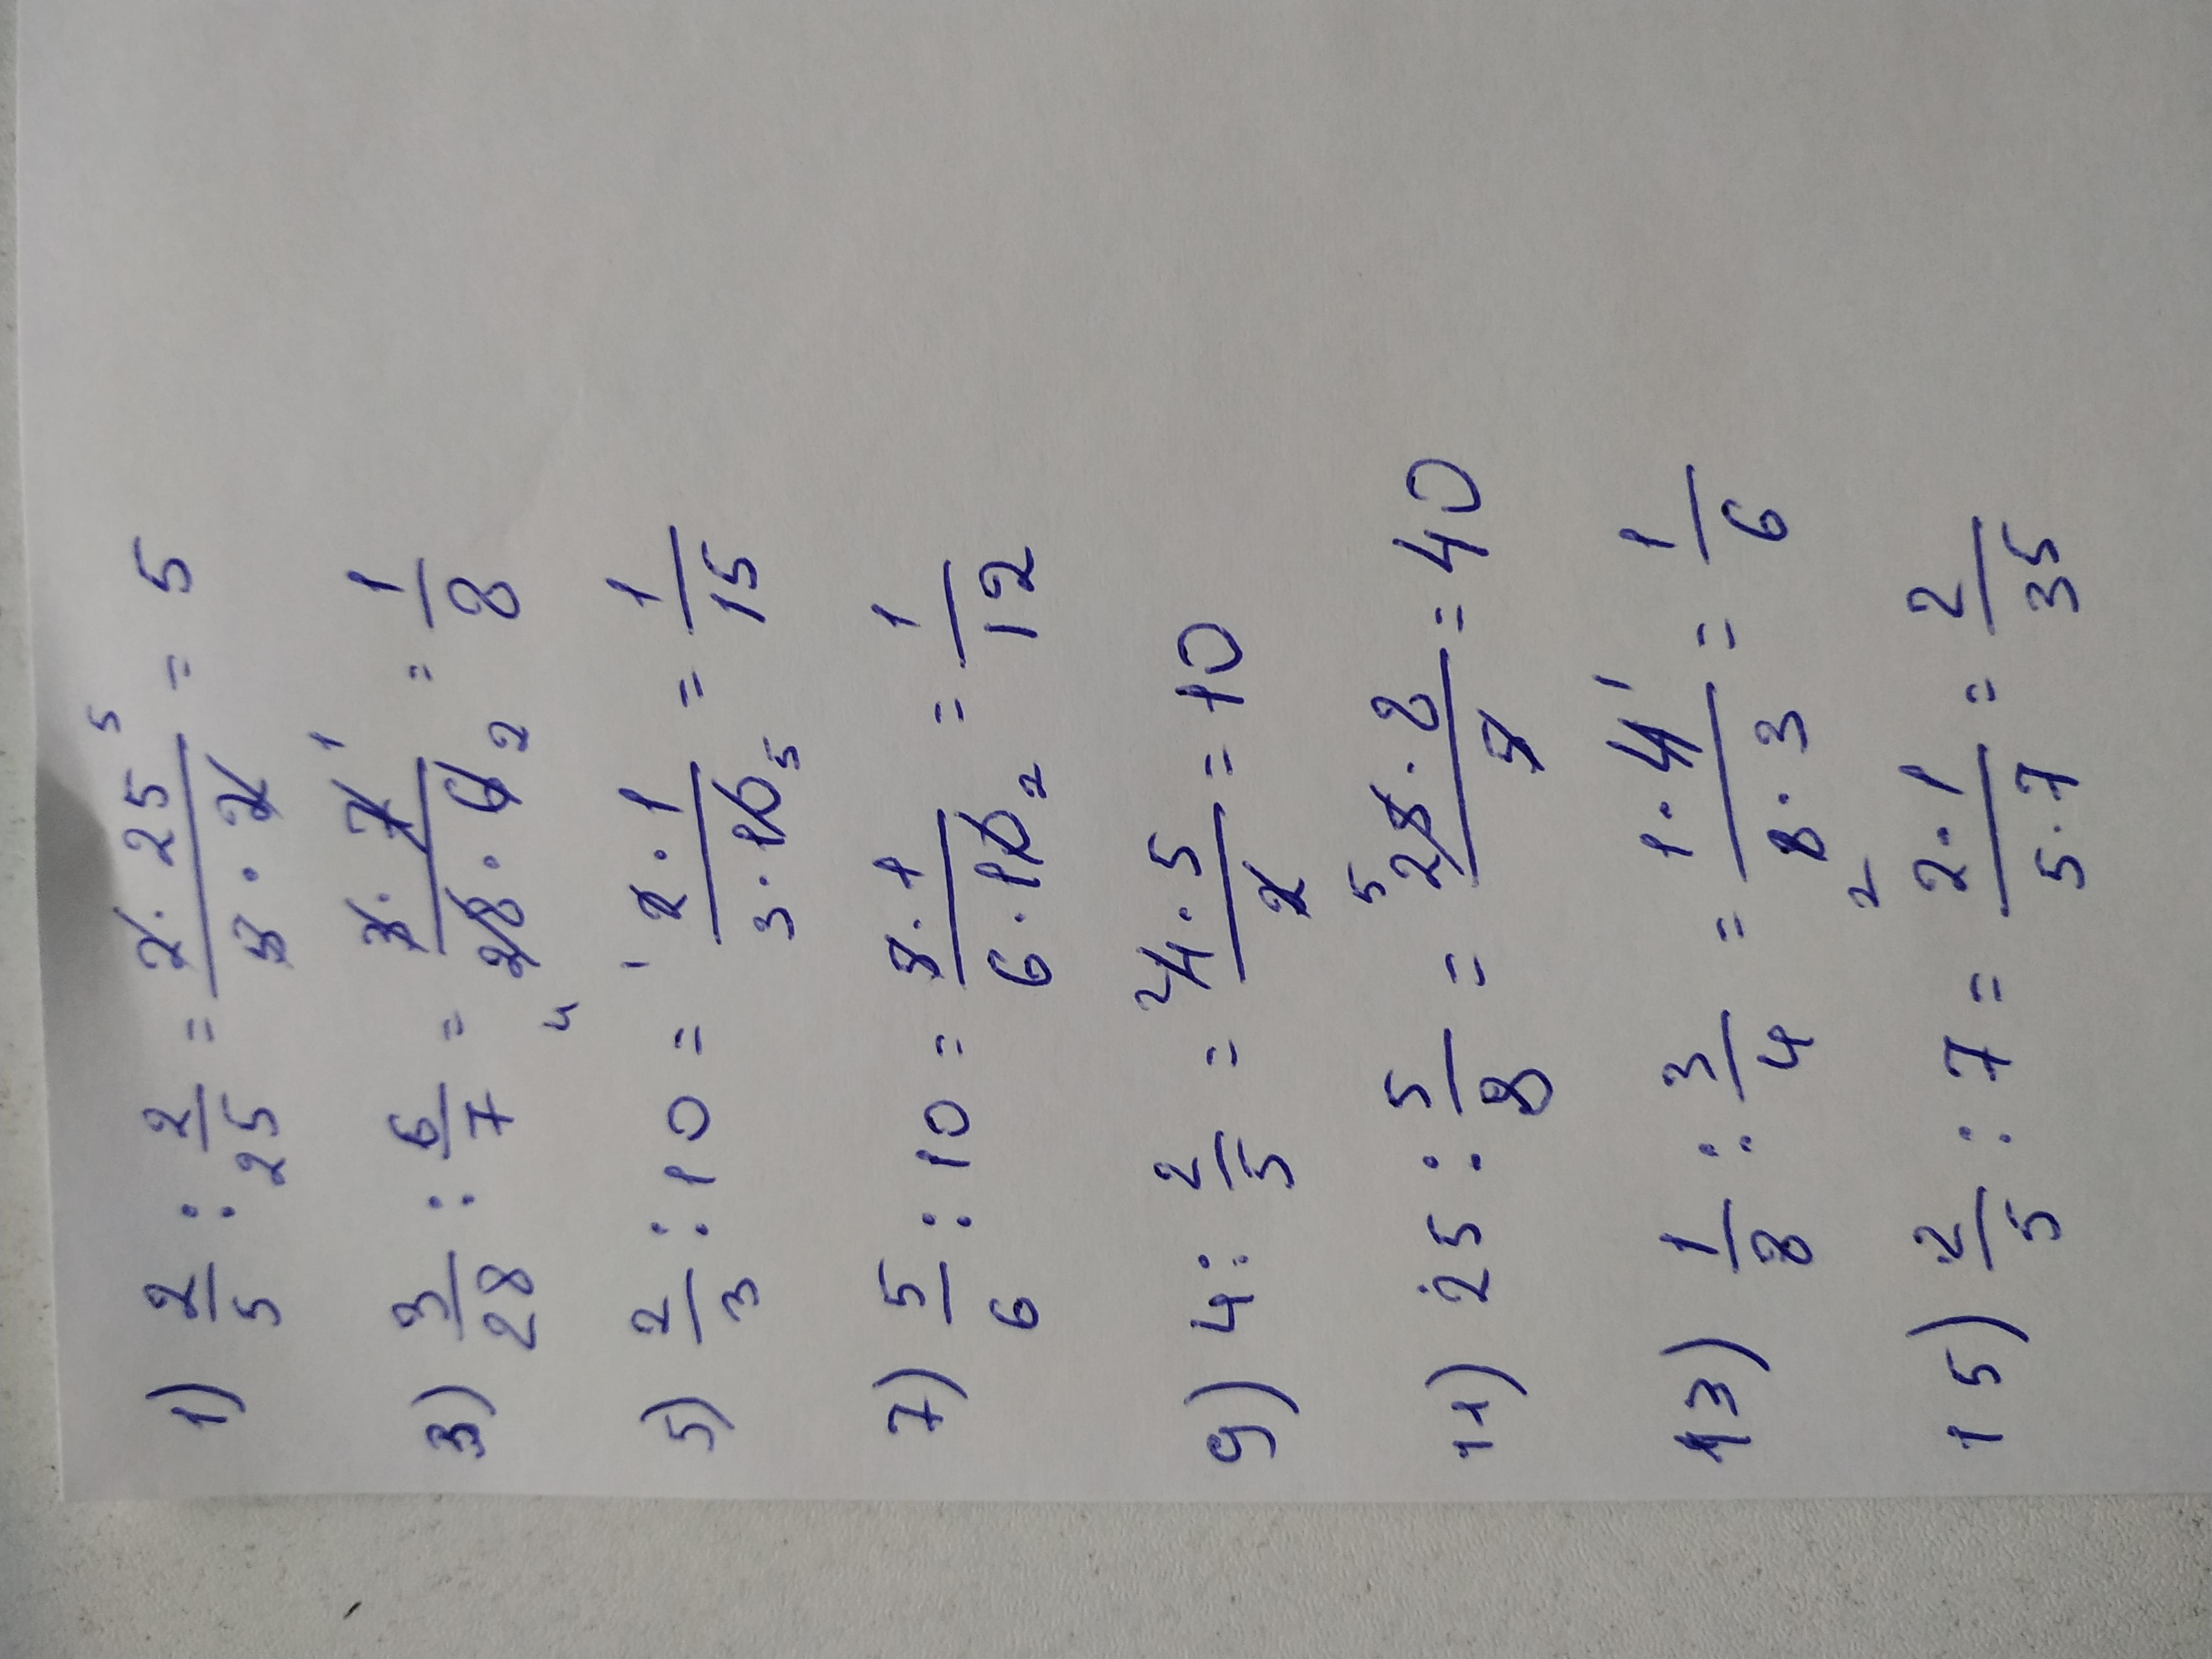 1) 2/5 : 2/25 = 2·25/5·2 = 5
3) 3/28 : 6/7 = 3·7/28·6 = 1/8
5) 2/3 : 10 = 2·1/3·10 = 1/15
7) 5/6 : 10 = 5·1/6·10 = 1/12
9) 4 : 2/5 = 4·5/2 = 10
11) 25 : 5/8 = 25·8/5 = 40
13) 1/8 : 3/4 = 1·4/8·3 = 1/6
15) 2/5 : 7 = 2·1/5·7 = 2/35